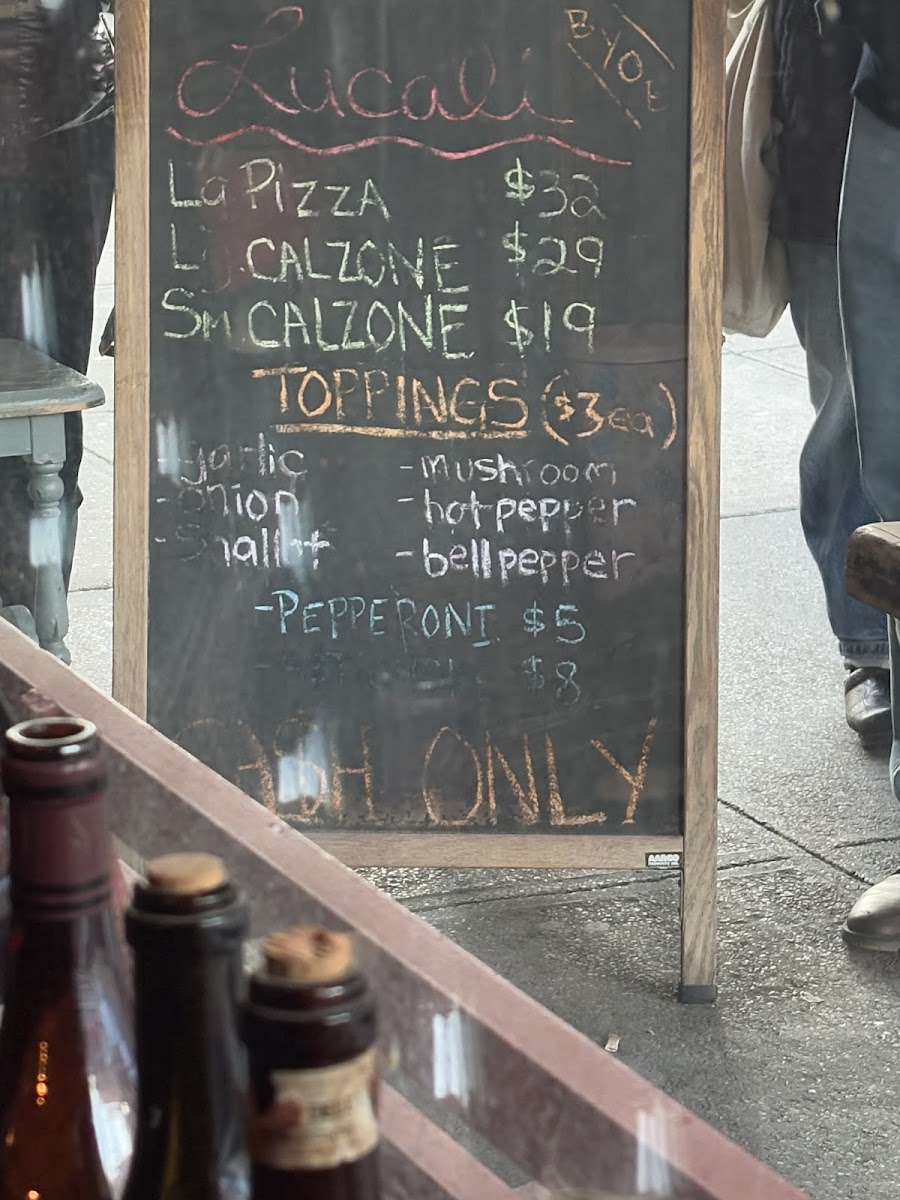 Lucali
BYOE
Lg PIZZA $32
Lg. CALZONE $29
Sm CALZONE $19
TOPPINGS ($3ea)
-garlic -mushroom
-onion -hot pepper
-shallot -bell pepper
-PEPPERONI $5
$8
CASH ONLY
AARCO